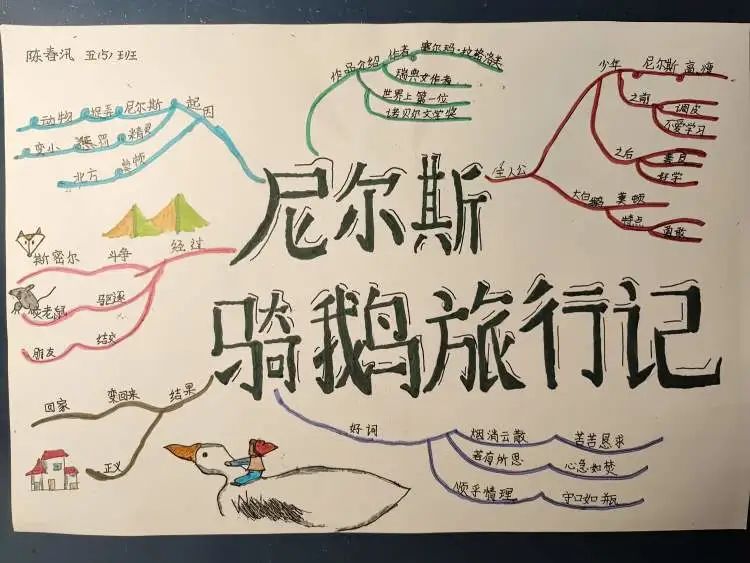 陈春汛 五(5)班班
作品介绍
作者
塞尔玛·拉格洛夫
瑞典女作者
世界上第一位
诺贝尔文学奖
主人公
少年
尼尔斯
高瘦
之前
调皮
不爱学习
之后
善良
好学
大白鹅
莱顿
特点
勇敢
起因
尼尔斯
捉弄
动物
精灵
惩罚
变小
北方
尼尔斯
骑鹅旅行记
经过
斗争
斯密尔
驱逐
灰老鼠
结交
朋友
结果
变回来
回家
正义
好词
烟消云散
苦苦恳求
若有所思
心急如焚
顺乎情理
守口如瓶